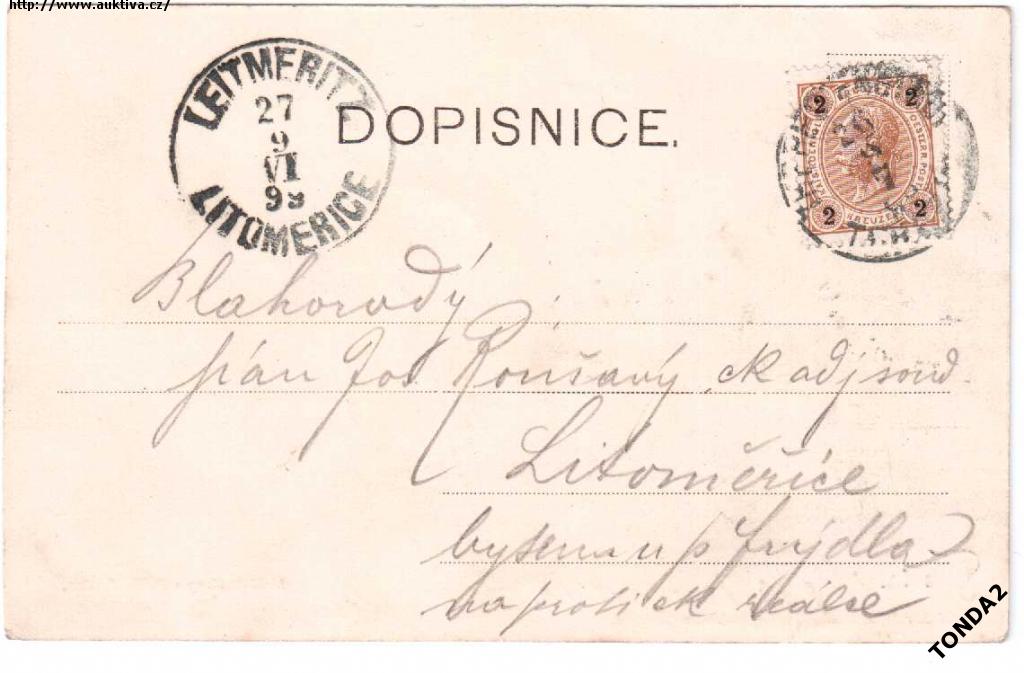 http://www.auktiva.cz/
LEITMERITZ
27
9
VI
99
LITOMERICE
DOPISNICE.
2 2
KREUZER
2 2
Blahorodý
pán Jos Roušavý ck adj soud.
Litoměřice
bytem u p Frýdla
naproti ck reálce
TONDA2